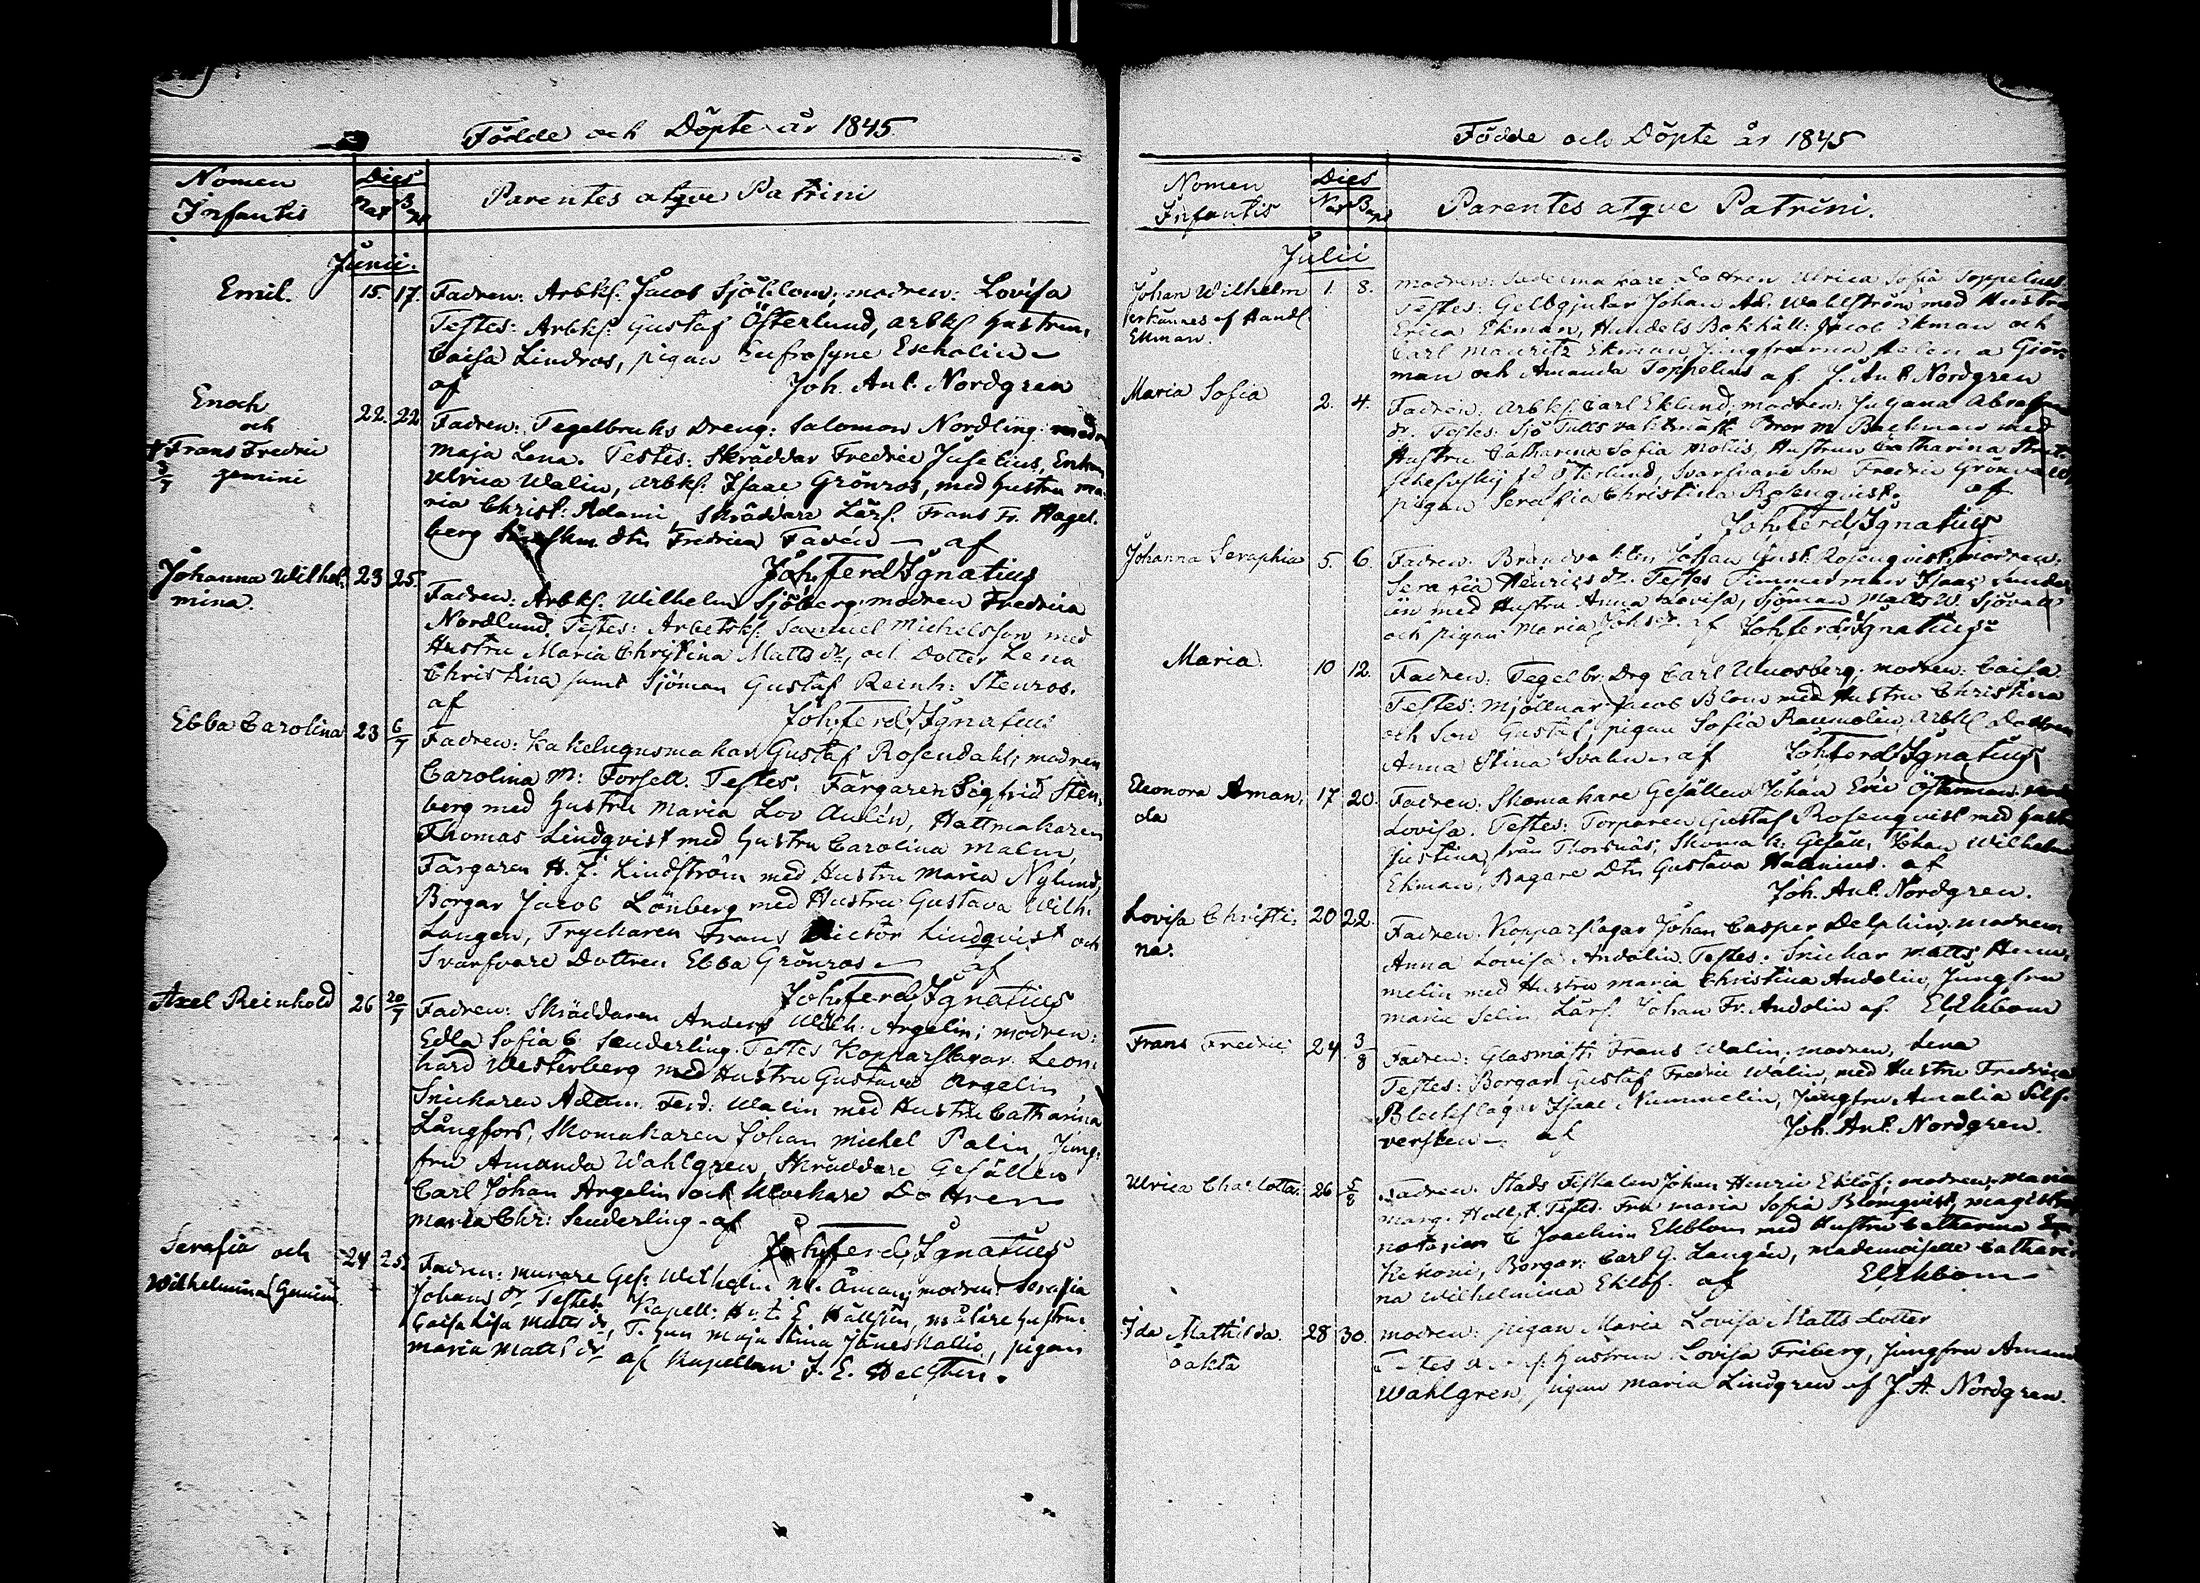 Födde och Döpte år 1845
Nomen Infantis
Dies
Nat Bapt
Parentes atqve Patrini
Junii.
Emil. 15. 17. Fadren: Arbk. Jacob Sjöblom; modren: Lovisa
Testes: Arbk. Gustaf Österlund, arbk hustrun,
Caisa Lindros, pigan Eufrosyne Escholin
af Joh. Ant. Nordgren
Enoch och Frans Fredric gemini 22. 22 Fadren: Tegelbruks Dreng: Salomon Nordling: modr
Maja Lena. Testes: Skräddar Fredric Juselius, Enkan
Ulrica Walin, arbk. Isaac Grönros, med hustru Ma-
ria Christ: Adami, Skräddare Lärl. Frans Fr. Hagel-
berg dtr Fredrica Fadén af
Joh. Ferd. Ignatius
Johanna Wilhel-mina. 23 25. Fadren: Arbk. Wilhelm Sjöberg; modren Fredrica
Nordlund. Testes: Arbetsk. Samuel Michelsson med
Hustru Maria Christina Matts dr, och Dotter Lena
Christina samt Sjöman Gustaf Reinh: Stenros.
af Joh. Ferd. Ignatius
Ebba Carolina 23 6/7 Fadren: Kakelugnsmakar Gustaf Rosendahl; modren
Carolina M: Forsell. Testes: Färgaren Sigfrid Sten-
berg med hustru Maria Lov Aulén, Hattmakaren
Thomas Lindqvist med hustru Carolina Malm,
Färgaren H. J. Lindström med Hustru Maria Nylund,
Borgar Jacob Lönberg med Hustru Gustava Wilh.
Langen, Tryckaren Frans Victor Lindqvist och
Svarfvare Dottren Ebba Grönros af
Joh. Ferd. Ignatius
Axel Reinhold 26 20/7 Fadren: Skräddaren Anders Wilh: Argelin; modren:
Edla Sofia C. Senderling. Testes Kopparslagar Leon-
hard Westerberg med Hustru Gustava Argelin,
Snickaren Adam Ferd: Walin med Hustru Catharina
Långfors, Skomakaren Johan Michel Palin, Jung-
fru Amanda Wahlgren, Skräddare Gesällen
Carl Johan Argelin och Dottren
Maria Chr: Senderling af
Joh. Ferd. Ignatius
Serafia och Wilhelmina (Gemini 24 25 Fadren: Murare Ges: Wilhelm Åman; modren: Serafia
Johans dr Testes: Kapell: E. Hellstén, målare hustrun
Caisa Lisa Matts dr, Maja Stina Jäneskallio, pigan
Maria Matts dr af Kapellan J. E. Hellstén.
Födde och Döpte år 1845
Nomen Infantis
Dies
Nat Bapt
Parentes atqve Patrini.
Julii
Johan Wilhelm erkännes af Handl. Ekman. 1. 8. modren: Sadelmakare Dottren Ulrica Sofia Toppelius
Testes: Gelbgjutar Johan Ad. Wallström med Hustru
Erica Ekman, Handels Bokhåll: Jacob Ekman och
Carl Mauritz Ekman, Jungfrurna Helena Giör-
man och Amanda Toppelius af J. Ant. Nordgren
Maria Sofia 2. 4. Fadren: Arbk. Carl Eklund; modren: Juliana Abrahams
dr. Testes: Sjö Tulls vaktmäst. Bror M. Backman med
Hustru Catharina Sofia Molis, Hustrun Catharina
Österlund, Svarfvare Son Fredric Grönvall,
pigan Serafia Christina Rosenqvist. af
Joh. Ferd. Ignatius
Johanna Seraphia 5. 6. Fadren: Brandvakten Johan Gust. Rosenqvist, modren:
Serafia Henrics dr. Testes Timmerman Isaac Sunde-
én med Hustru Anna Lovisa, Sjöman Matts W. Sjövall
och pigan Maria Johs dr. af Joh. Ferd. Ignatius
Maria. 10 12. Fadren: Tegelbr: Drg Carl Uluosberg; modren: Caisa
Testes: Mjölnar Jacob Blom med Hustru Christina
och Son Gustaf; pigan Sofia Raumolin, Arbk Dottren
Anna Stina Svahn. af Joh. Ferd. Ignatius
Eleonora Aman-da 17 20. Fadren: Skomakare Gesällen Johan Eric Österman, modr
Lovisa. Testes: Torparen Gustaf Rosenqvist med hustr
Justina, från Thorsnäs, Skomak: Gesäll: Johan Wilhelm
Ekman, Bagare Dtr Gustava Hálenius. af
Joh. Ant. Nordgren.
Lovisa Christi-na. 20 22. Fadren: Kopparslagar Johan Casper Delphin, modren:
Anna Lovisa Andolin. Testes: Snickar Matts Hum-
melin med Hustru Maria Christina Andolin, Jungfru
Maria Selin, Lärl. Johan Fr. Andolin af. Ekbom
Frans Fredric 24. 3/8 Fadren: Glasmäst. Frans Walin; modren, Lena
Testes: Borgar Gustaf Fredric Walin, med Hustru Fredrica
Bleckslagar Isaac Nummelin, Jungfru Amalia Silf-
versten. af Joh. Ant. Nordgren.
Ulrica Charlotta. 26 5/8 Fadren: Stads Fiskalen Johan Henric Eklöf; modren: Maria
Marg. Hellst. Testes: Fru Maria Sofia Blomqvist, magistrats
notarien C Joachim Ekblom med Hustru Catharina
Keckoni, Borgar: Carl G. Langén, mademoiselle Cathari-
na Wilhelmina Eklöf. af Ekbom
Ida Mathilda oäkta 28 30. modren: pigan Maria Lovisa Matts Dotter
Testes hustrun Lovisa Friberg, Jungfru Amand
Wahlgren, pigan Maria Lindgren af J. A. Nordgren.